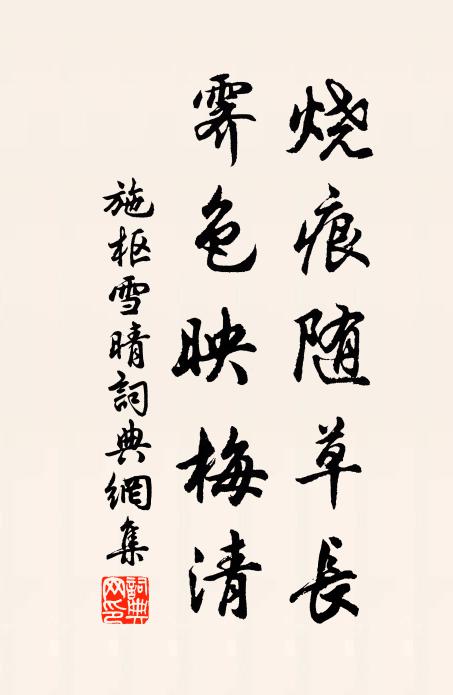 烧痕随草長
霁色映梅清
施枢雪晴詞典網集
詞典网印